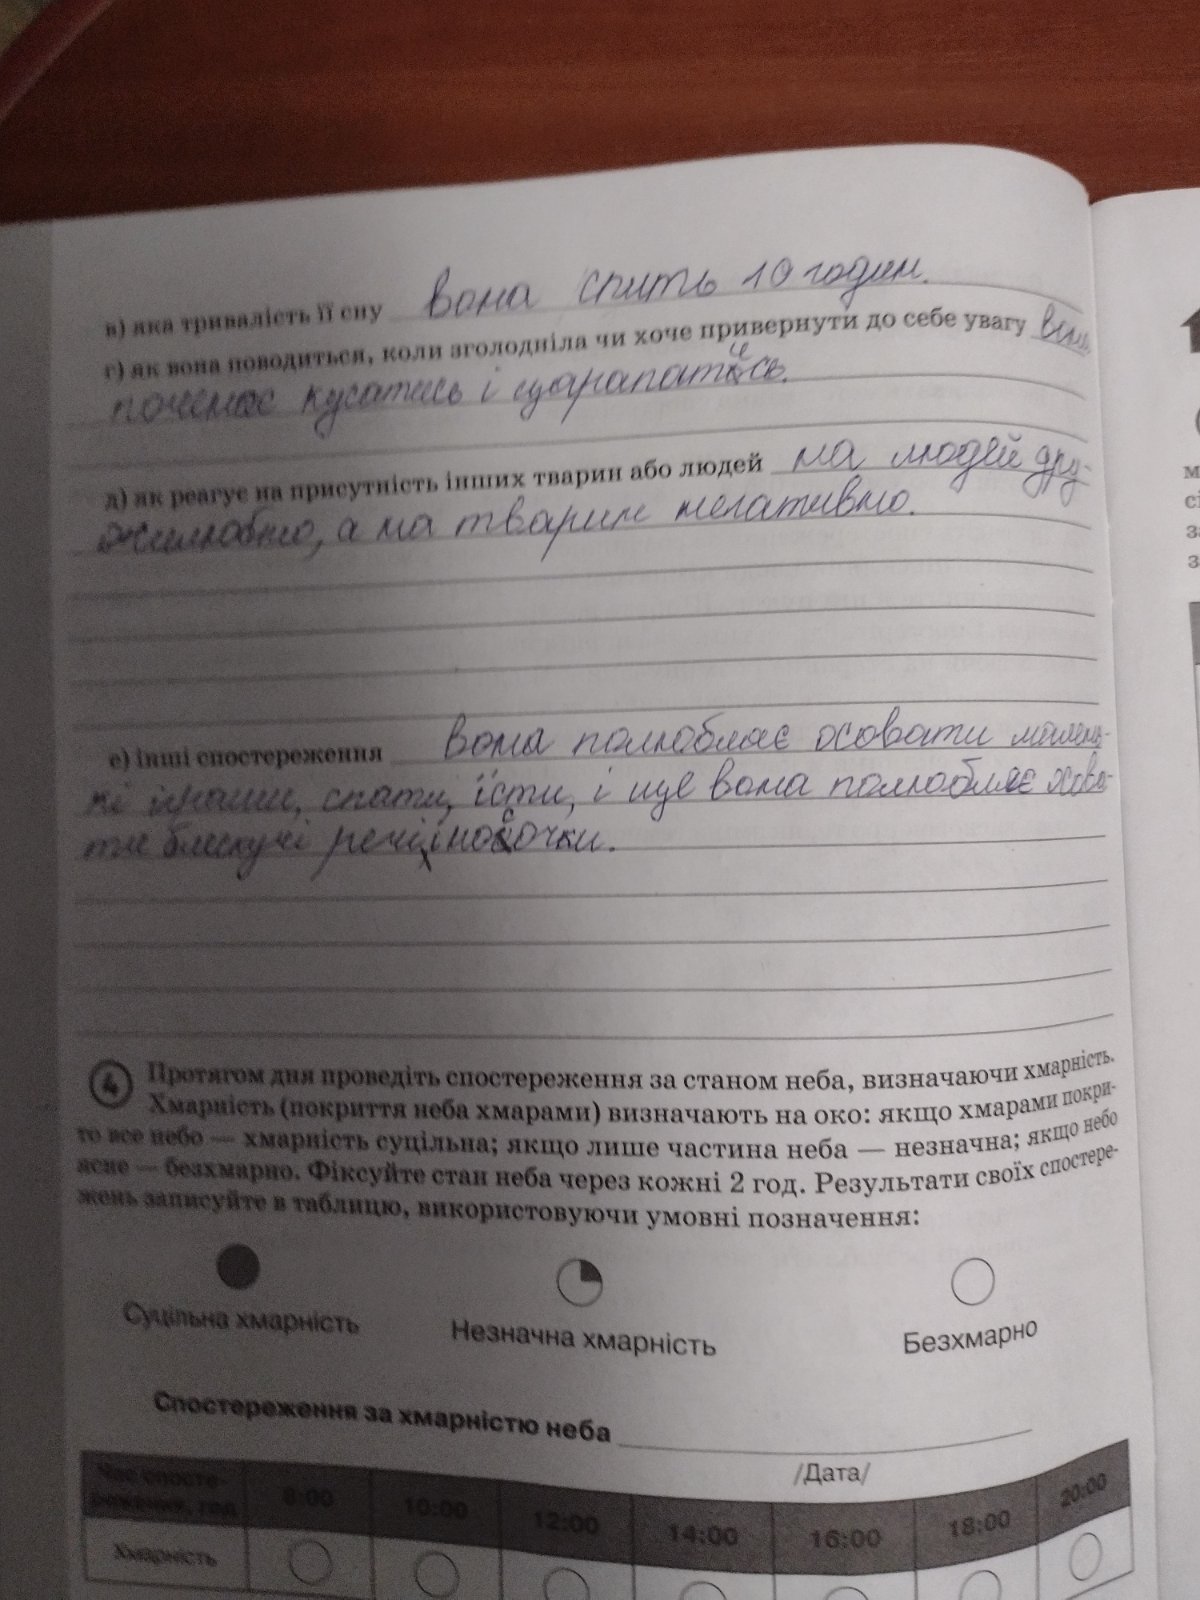 в) яка тривалість її сну вона спить 10 годин.
г) як вона поводиться, коли зголодніла чи хоче привернути до себе увагу
починає кусатись і царапатись.
д) як реагує на присутність інших тварин або людей на людей дру-
жилюбно, а на тварин негативно.
е) інші спостереження вона полюбляє осовати малень-
кі іграшки, спати, їсти, і ще вона полюбляє хова-
ти блискучі речі, і носочки.
4 Протягом дня проведіть спостереження за станом неба, визначаючи хмарність.
Хмарність (покриття неба хмарами) визначають на око: якщо хмарами покри-
то все небо — хмарність суцільна; якщо лише частина неба — незначна; якщо небо
ясне — безхмарно. Фіксуйте стан неба через кожні 2 год. Результати своїх спостере-
жень записуйте в таблицю, використовуючи умовні позначення:
Суцільна хмарність Незначна хмарність Безхмарно
Спостереження за хмарністю неба
/Дата/
Час спосте-
реження, год 8:00 10:00 12:00 14:00 16:00 18:00 20:00
Хмарність
м
сі
за
з